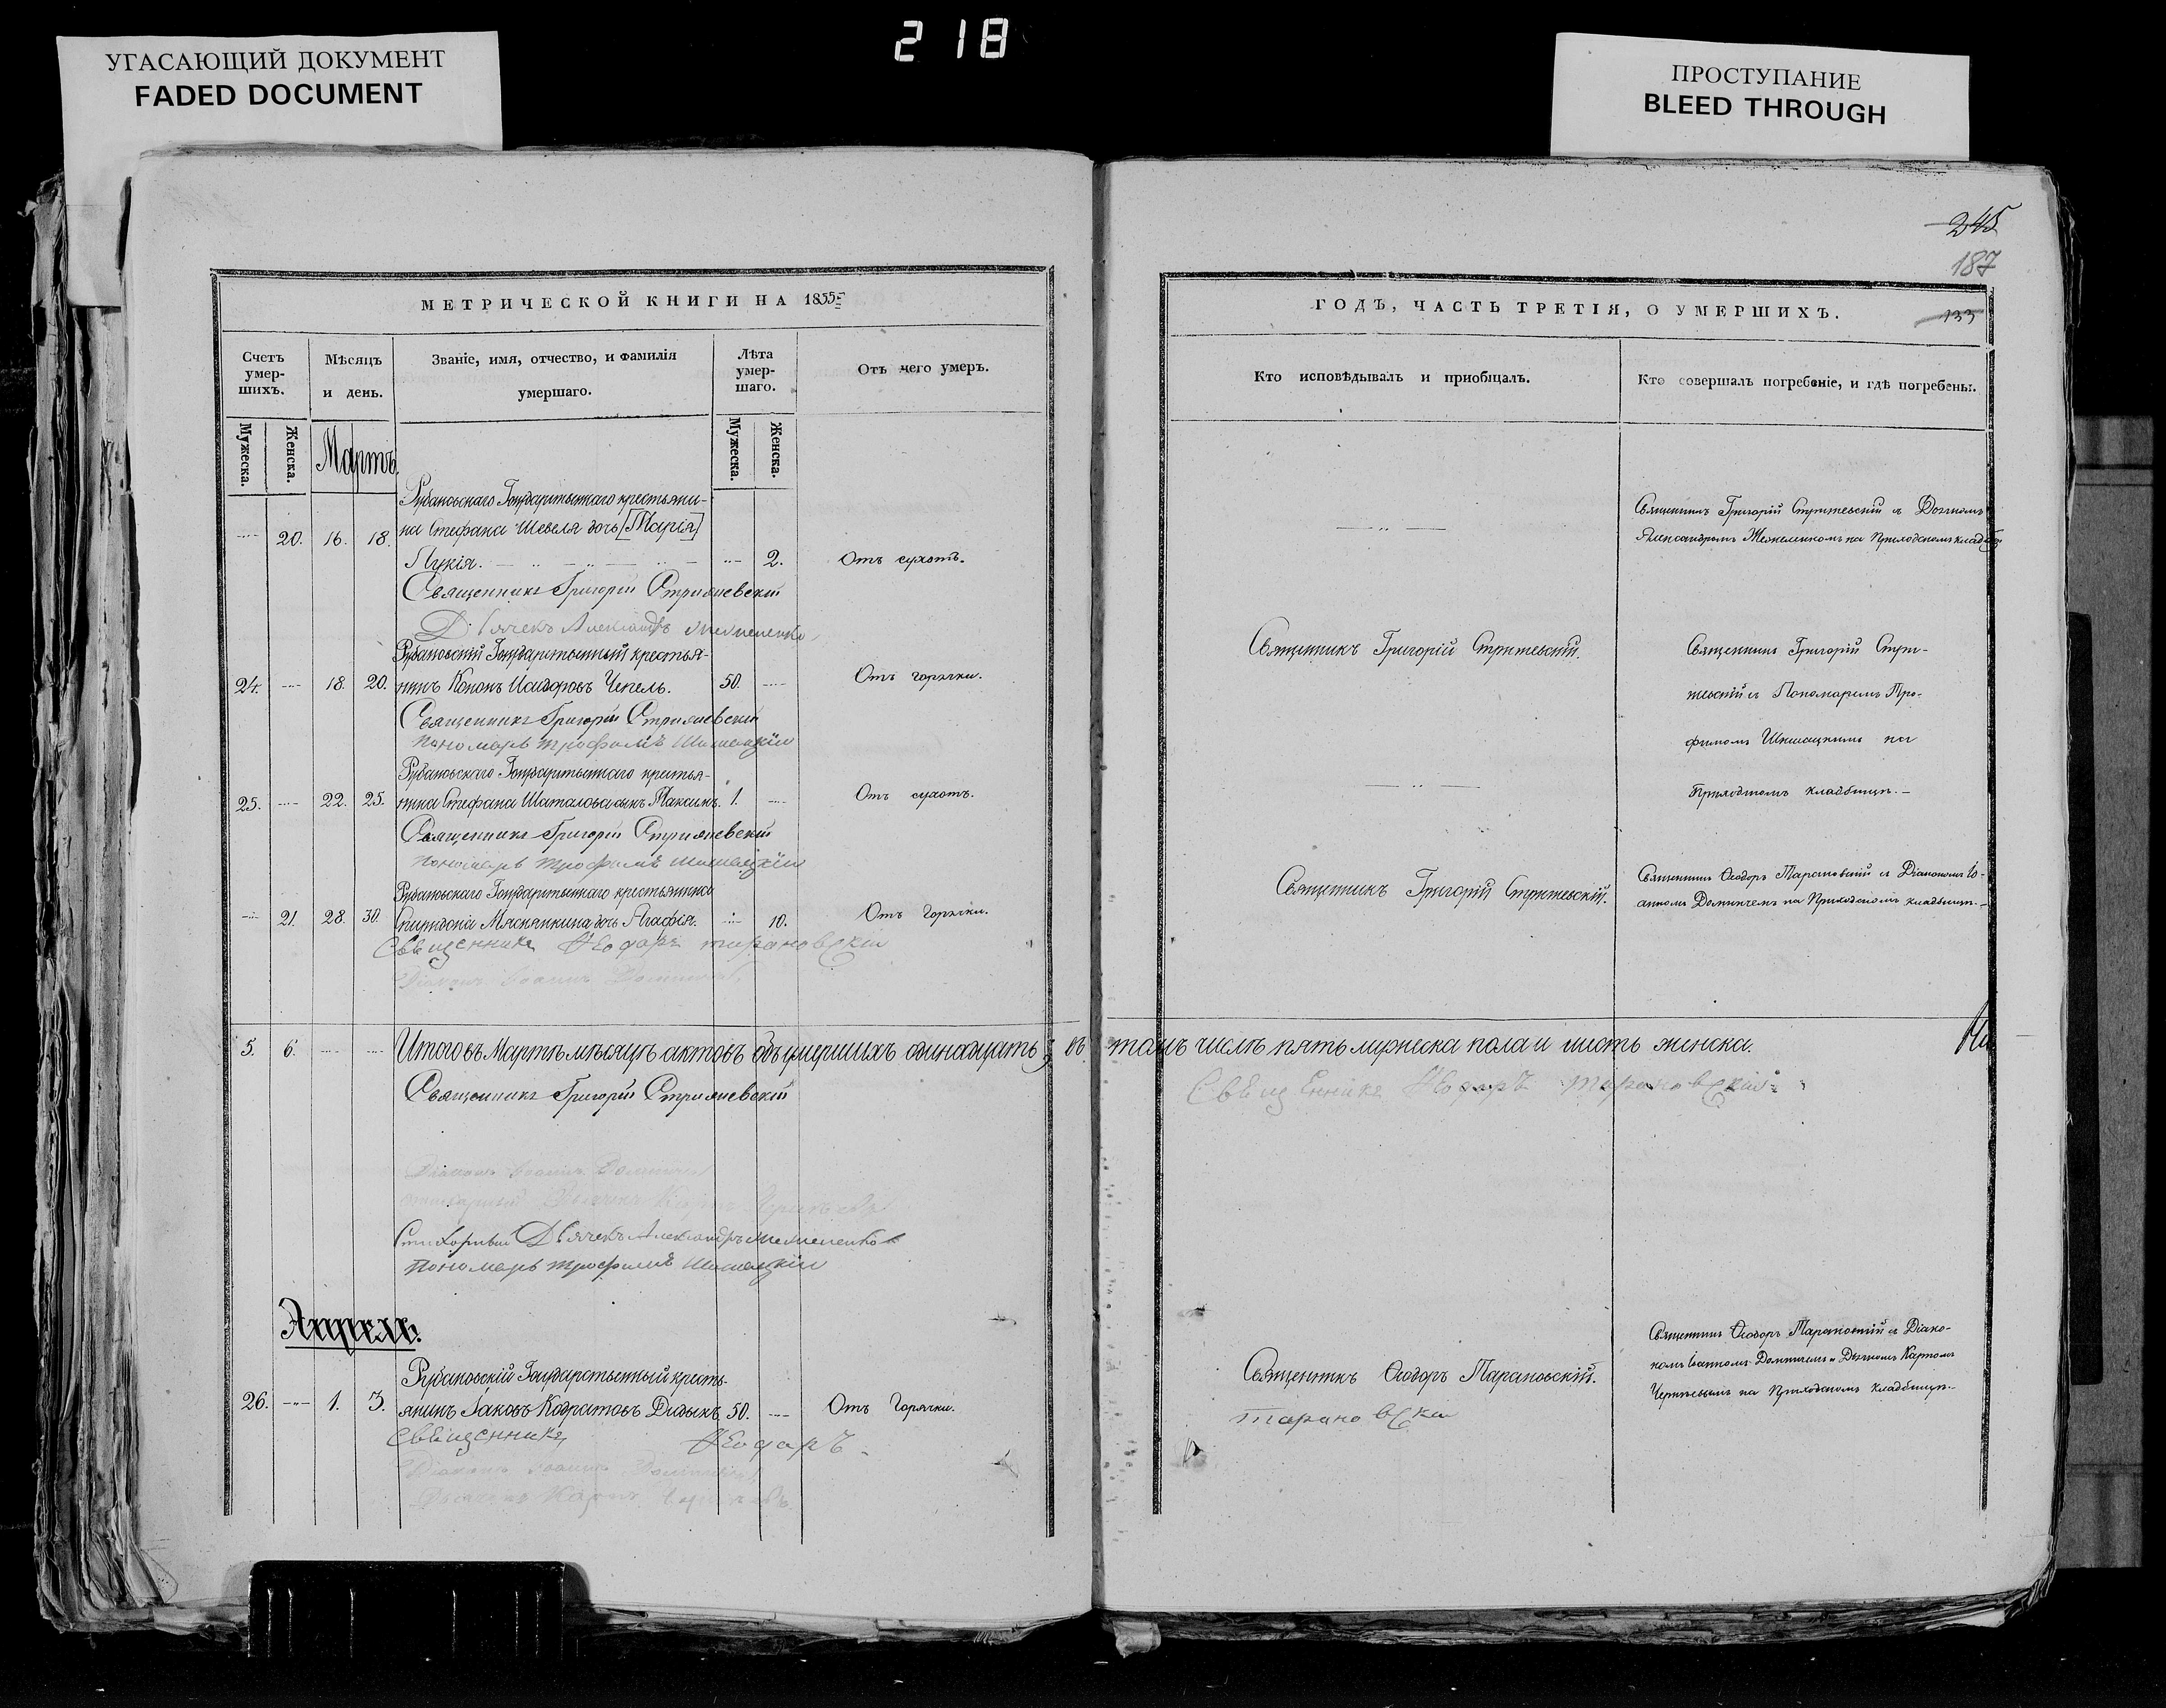 218
УГАСАЮЩИЙ ДОКУМЕНТ
FADED DOCUMENT
ПРОСТУПАНИЕ
BLEED THROUGH
МЕТРИЧЕСКОЙ КНИГИ НА 1855
Счетъ умер-шихъ.
Мужеска.
Женска.
Мѣсяцъ и день.
Мартъ
Званіе, имя, отчество, и фамилія
умершаго.
Лѣта умер-шаго.
Мужеска.
Женска.
Отъ чего умеръ.
Рубановскаго Государственнаго крестьяни-
20. 16. 18. на Стефана Шевеля дочь [Марія]
Лукія. 2. Отъ сухотъ.
Священникъ Григорій Стрижевскій
Дьячекъ Александръ
Рубановскій Государственный крестья-
24. 18. 20. нинъ Кононъ Исидоровъ Чепель. 50. Отъ горячки.
Священникъ Григорій Стрижевскій
Пономарь Трофимъ Шишацкій
Рубановскаго Государственнаго крестья-
25. 22. 25. нина Стефана Шаталова сынъ Максимъ. 1. Отъ сухотъ.
Священникъ Григорій Стрижевскій
Пономарь Трофимъ Шишацкій
Рубановскаго Государственнаго крестьянина
21. 28. 30. Спиридона Мяснянкина дочь Агафія. 10. Отъ Горячки.
Свѣщенникъ Ѳеодаръ Тарановскій
Діаконъ Іоаннъ
5. 6. Итого въ Мартѣ мѣсяцѣ актовъ объ умершихъ одинадцать, въ
Священникъ Григорій Стрижевскій
Діаконъ Іоаннъ
Стихарный Дьячекъ Александръ
Пономарь Трофимъ Шишацкій
Апрель.
Рубановскій Государственный кресть-
26. 1. 3. янинъ Іаковъ Кодратовъ Дидыкъ 50. Отъ Горячки.
Свѣщенникъ Ѳеодаръ
Діаконъ Іоаннъ
Дьячекъ Карпъ
245
187
ГОДЪ, ЧАСТЬ ТРЕТІЯ, О УМЕРШИХЪ.
133
Кто исповѣдывалъ и пріобщалъ.
Кто совершалъ погребеніе, и гдѣ погребены.
Священникъ Григорій Стрижевскій съ Дьячкомъ
Александромъ на Приходскомъ кладбищѣ
Священникъ Григорій Стрижевскій.
Священникъ Григорій Стри-
жевскій съ Пономаремъ Тро-
фимомъ Шишацкимъ на
Приходскомъ кладбищѣ.
Священникъ Григорій Стрижевскій.
Священникъ Ѳеодоръ Тарановскій съ Діакономъ Іо-
анномъ на Приходскомъ кладбищѣ.
томъ числѣ пять мужеска пола и шесть женска.
Свѣщенникъ Ѳеодаръ Тарановскій
Священникъ Ѳеодоръ Тарановскій.
Тарановскій
Священникъ Ѳеодоръ Тарановскій съ Діако-
номъ Іоанномъ и Дьячкомъ Карпомъ
на Приходскомъ кладбищѣ.